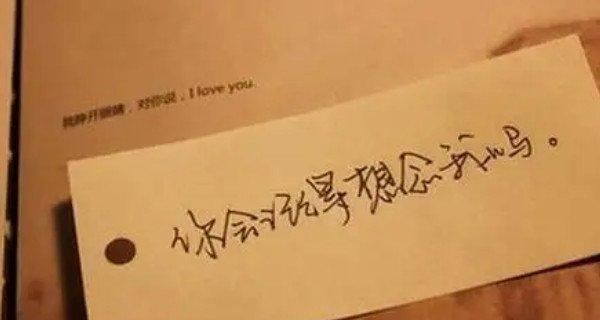 我睁开眼睛，对你说，I love you.
你会记得想念我吗。